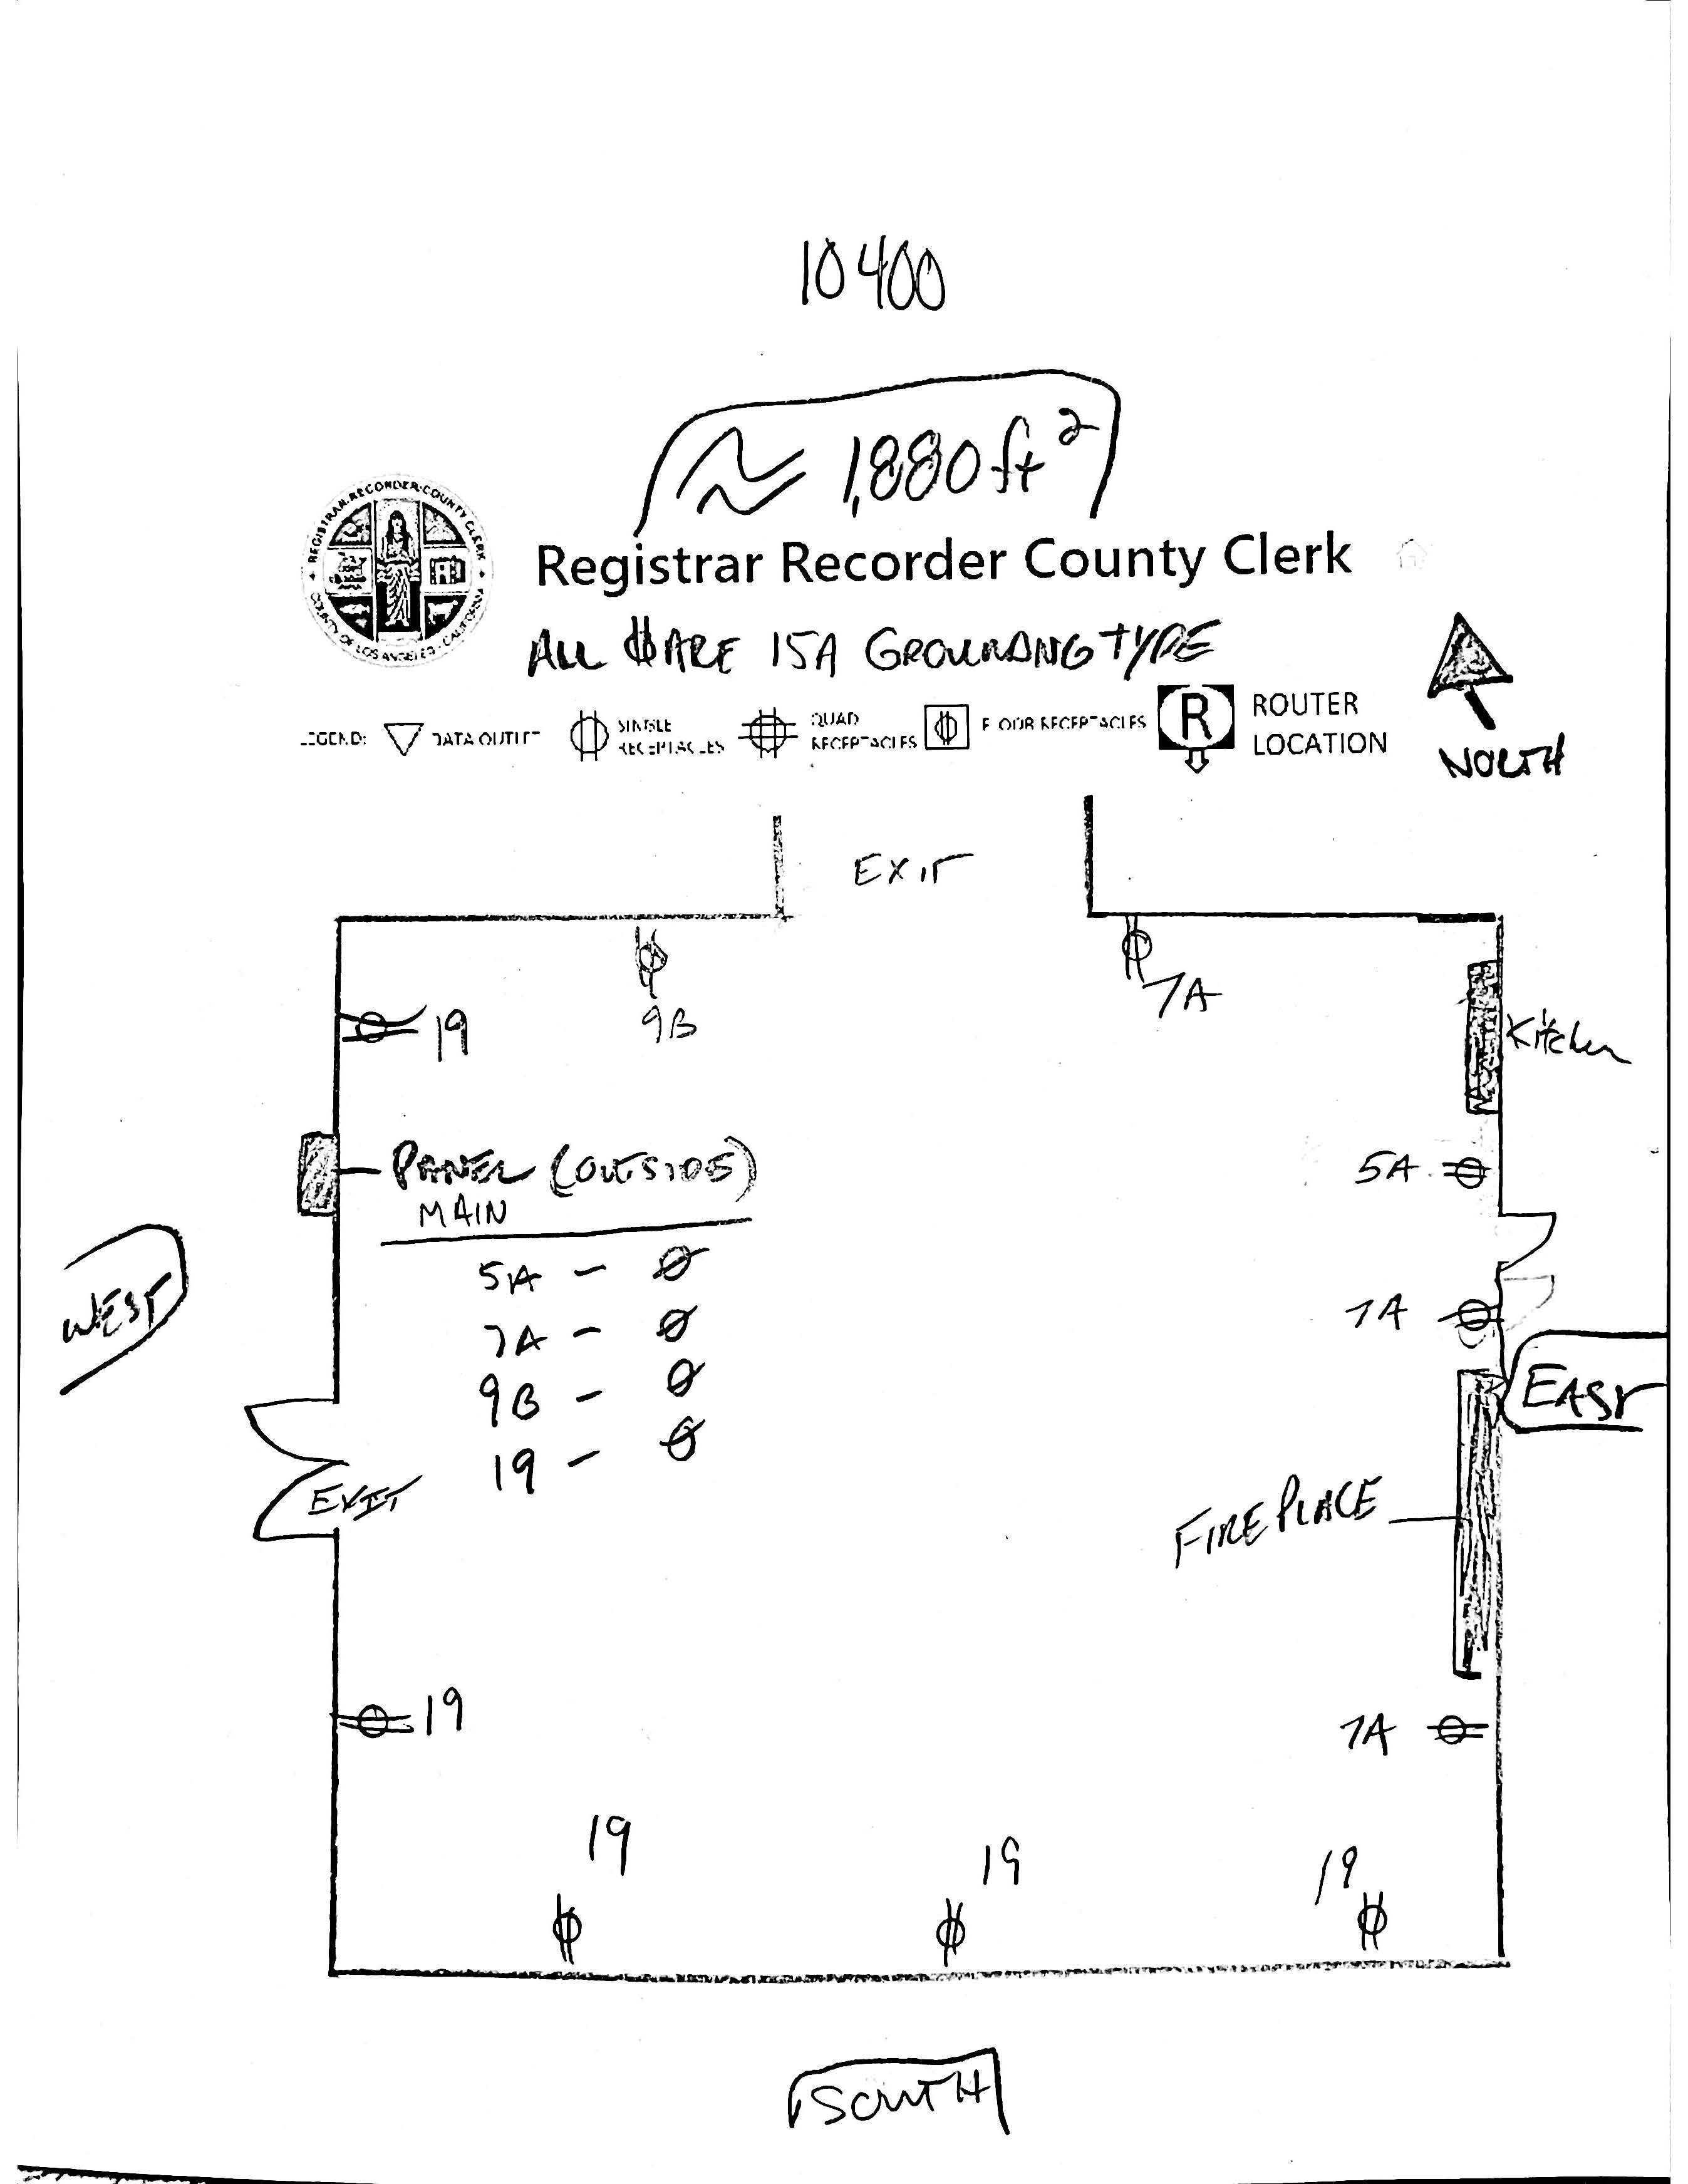 10400
≈ 1,880 ft²
REGISTRAR-RECORDER-COUNTY CLERK
COUNTY OF LOS ANGELES - CALIFORNIA
Registrar Recorder County Clerk
ALL ARE 15A GROUNDING TYPE
LEGEND: DATA OUTLET SINGLE RECEPTACLES QUAD RECEPTACLES FLOOR RECEPTACLES R ROUTER LOCATION
NORTH
EXIT
9B
7A
19
Kitchen
PANEL (OUTSIDE)
MAIN
5A
WEST
5A - Ø
7A - Ø
9B - Ø
19 - Ø
7A
EAST
EXIT
FIREPLACE
19
7A
19
19
19
SOUTH